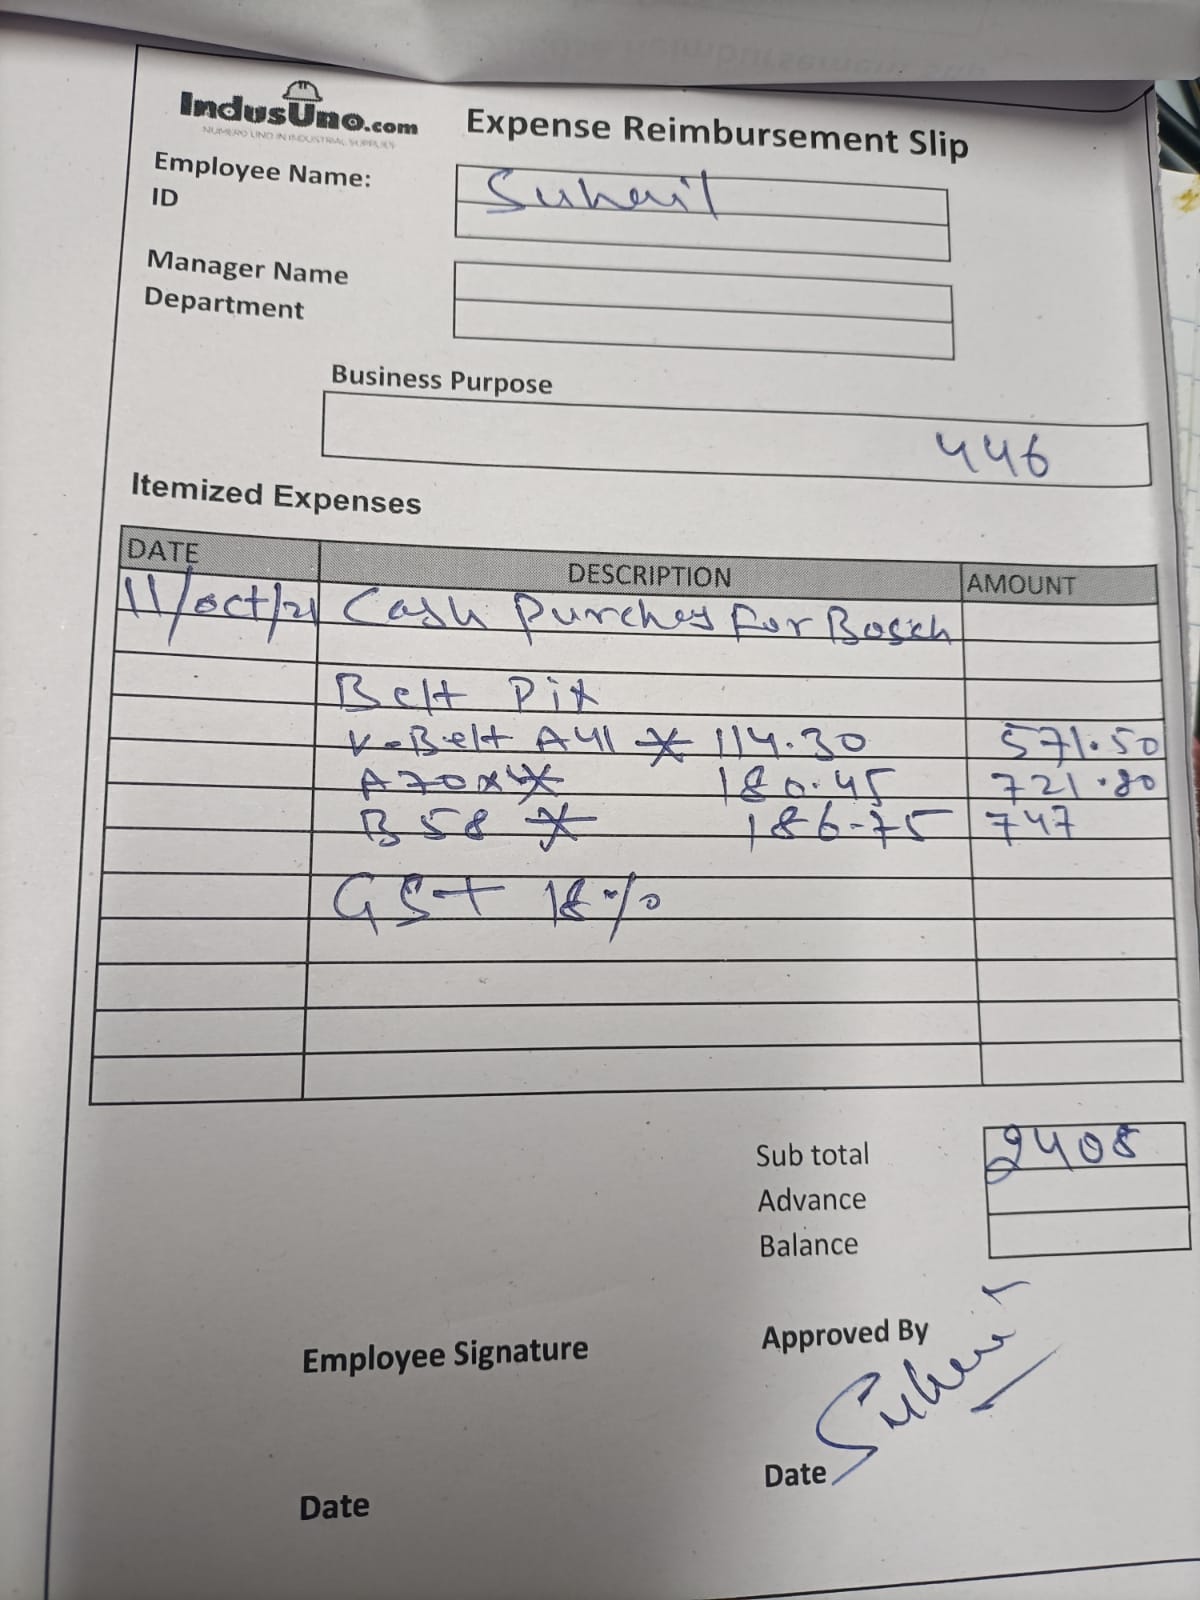 IndusUno.com
NUMERO UNO IN INDUSTRIAL SUPPLIES
Expense Reimbursement Slip
Employee Name: Suhail
ID
Manager Name
Department
Business Purpose
446
Itemized Expenses
DATE DESCRIPTION AMOUNT
11/oct/21 Cash Purches For Bosch
Belt Pix
V-Belt A41 * 114.30 571.50
A70 x 4 180.45 721.80
B 58 * 186-75 747
GST 18%
Sub total 2408
Advance
Balance
Employee Signature
Approved By
Suhail
Date
Date